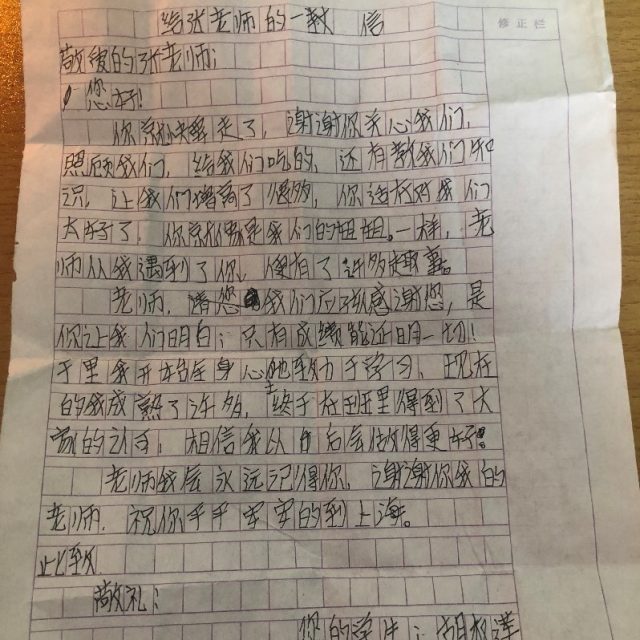 给张老师的一封信
修正栏
敬爱的张老师：
您好！
你就快要走了，谢谢你关心我们，
照顾我们，给我们吃的，还有教我们知
识，让我们增高了很多，你这校对我们
太好了，你就像是我们的姐姐。一样，老
师从我遇到了你，便有了许多趣事。
老师，请您 我们应该感谢您，是
你让我们明白：只有成绩能证明一切！
于是我开始全身心地致力于学习，现在
的我成熟了许多，终于在班里得到了大
家的认可，相信我以后会做得更好！
老师我会永远记得你，谢谢你我的
老师，祝你平平安安的到上海。
此致
敬礼！
您的学生：胡